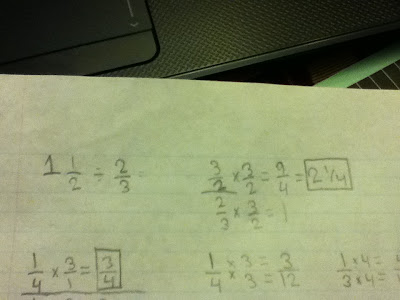 1 1/2 ÷ 2/3
3/2 × 3/2 = 9/4 = 2 1/4
2/3 × 3/2 = 1
1/4 × 3/1 = 3/4
1/4 × 3 × 3 = 3/12
1/3 × 4 = × 4 =